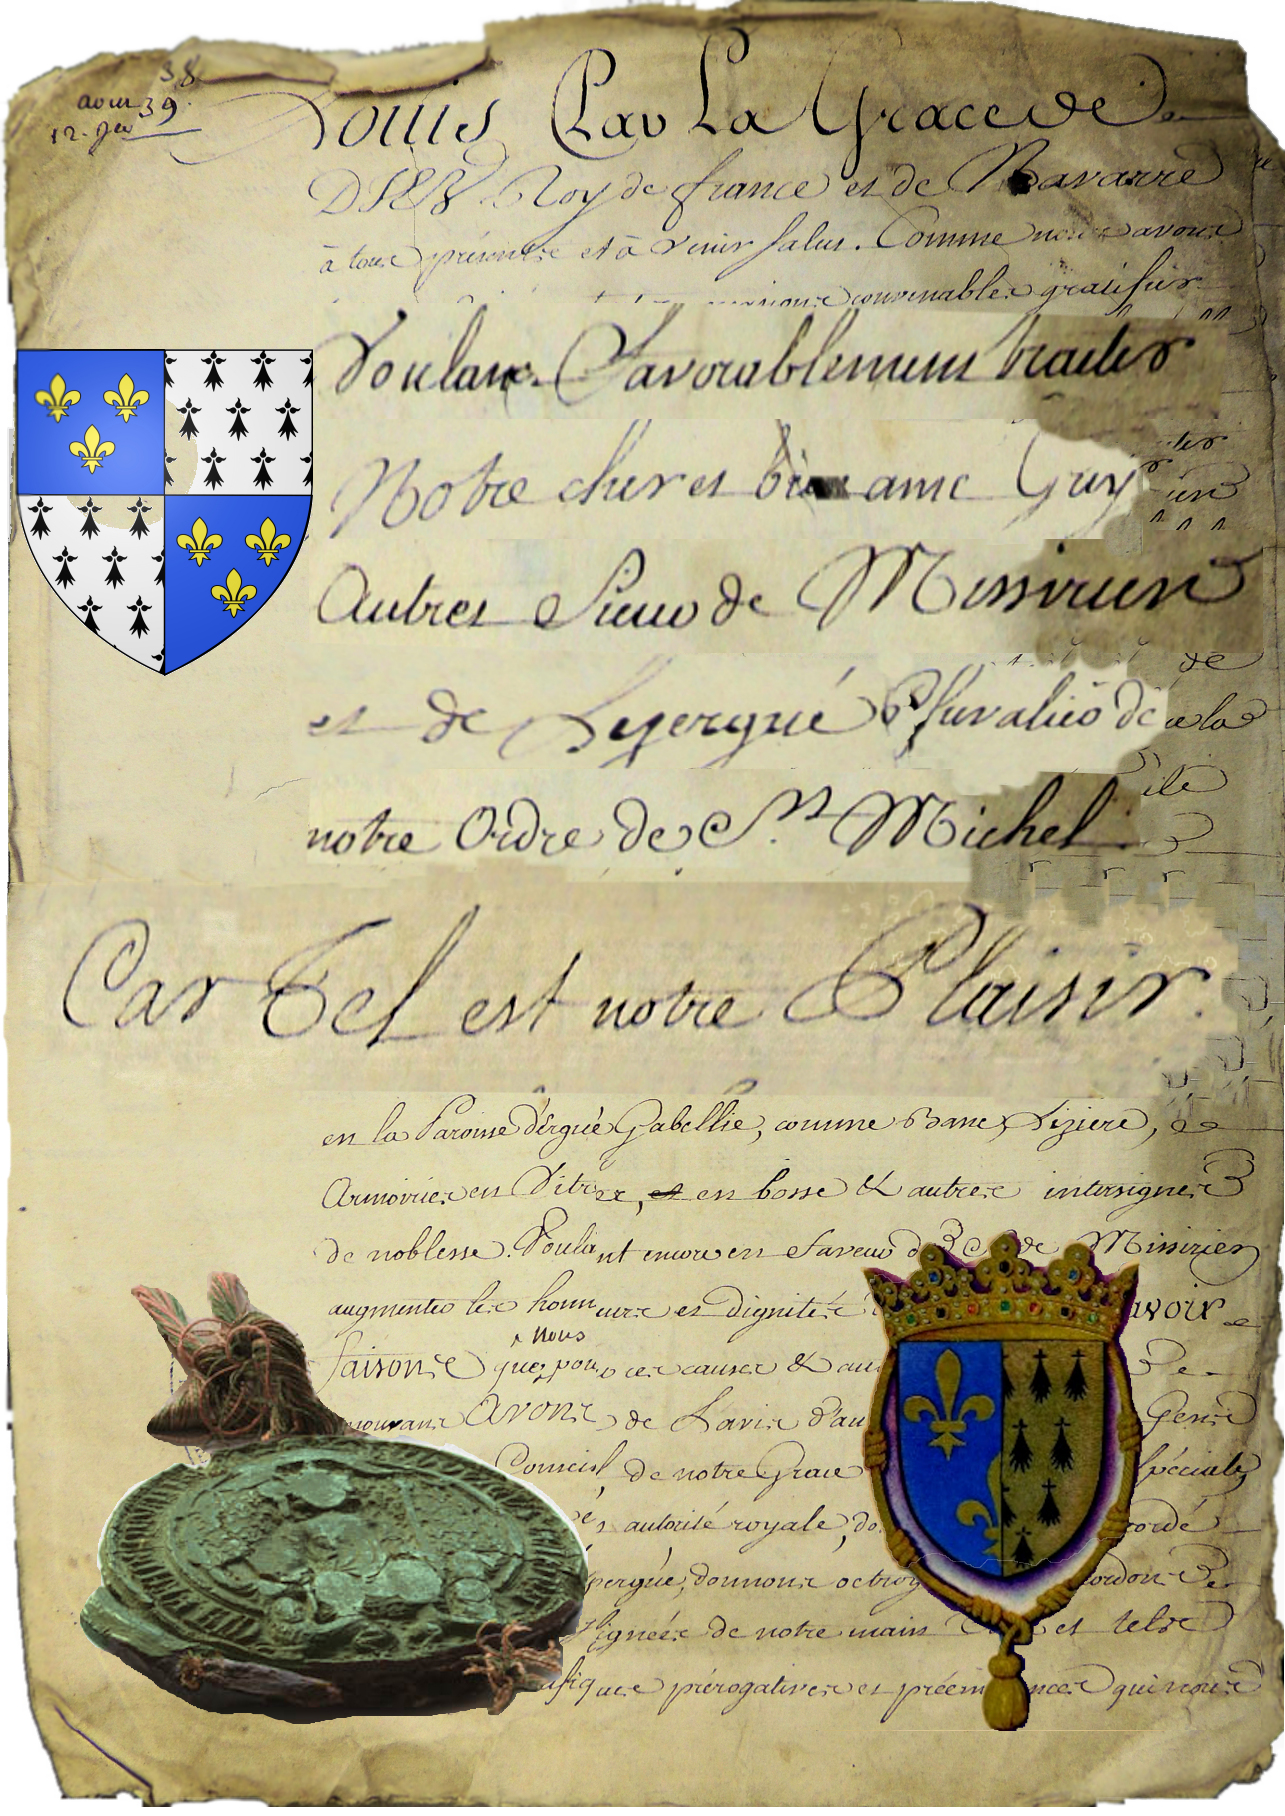 38
39.
Louis Par La Grace de
DIEV Roy de france et de Navarre
à tous présents et à venir salut. Comme nous avons
convenables gratifier
Voulant Favorablement traiter
Notre cher et bien amé Guy
Autret Sieur de Missirien
et de Lezergué Chevalier de
notre Ordre de St. Michel
Car Tel est notre Plaisir.
en la Paroisse d'ergué Gabellic, comme Banc, Lizière,
Armoiries en Vitres, et en bosse & autres intersignes
de noblesse. Voulant encore en faveur de Missirien
augmenter les honneurs et dignités avoir
nous
faisons que, pour ces causes & au
mouvant avons de L'avis d'au Gens
Conseil, de notre Grace spéciale
autorité royale, cordé
pergué, donnons octroy cordon
signées de notre main et tels
prérogatives et préeminences qui nous